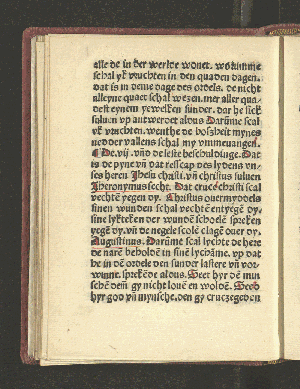 alle de in der werlde wonet.worumme
schal yk vruchten in den quaden dagen.
dat is in deme dage des ordels. de nicht
alleyne quaet schal wezen. mer aller qua-
dest eynem yewelken sunder. dar he sick
schluen vp antwerdet aldus Darūme scal
yk vruchten. wente de bosheit mynes
nedder vallens schal my vmmeuangen.
De .vij. vn̄ de leste beschuldinge. Dat
is de pyne vn̄ dat resscap des lydens vn-
ses heren Ihesu christi. vn̄ christus suluen
Iheronymus secht. Dat cruce christi scal
vechten yegen dy. Christus ouermyddels
sinen wunden schal vechten entyegē dy.
sine lyktekē der wundē scholē sprekē
yegē dy. vn̄ de negele scolē clagē ouer dy.
Augustinus. Darūme scal lychte de here
de narē beholdē in sinē lychāme. vp dat
he in dē ordele den sunder lastere vn̄ vor-
winne. sprekēde aldus. Seet hyr dē min-
schē dem gy nicht louē en woldē. Seeb
hyr god vn̄ mynsche. den gy crucegeden